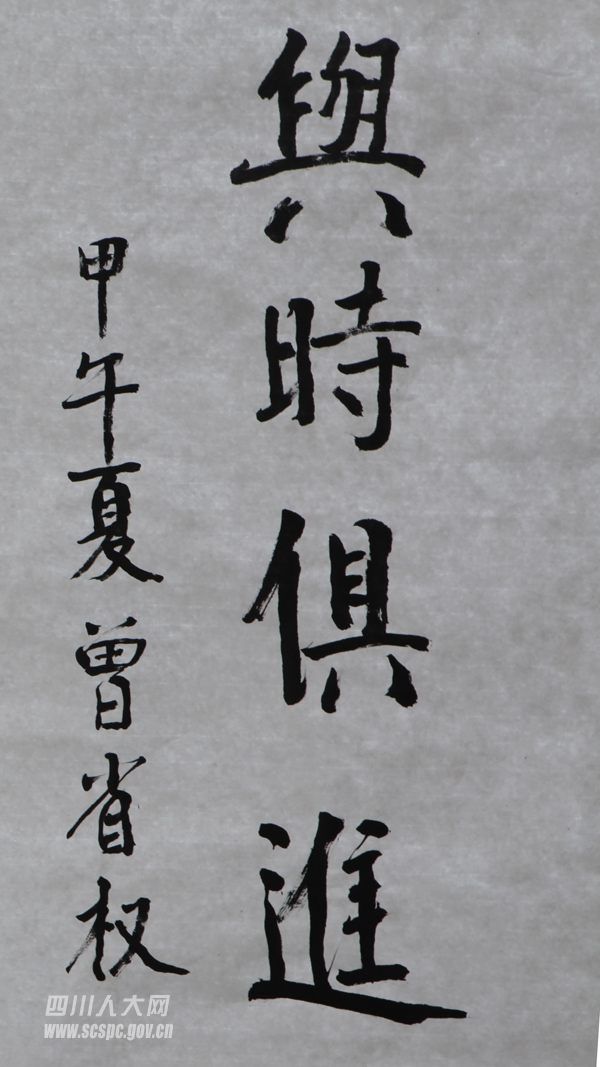 與時俱進
甲午夏曾省权
四川人大网
www.scspc.gov.cn